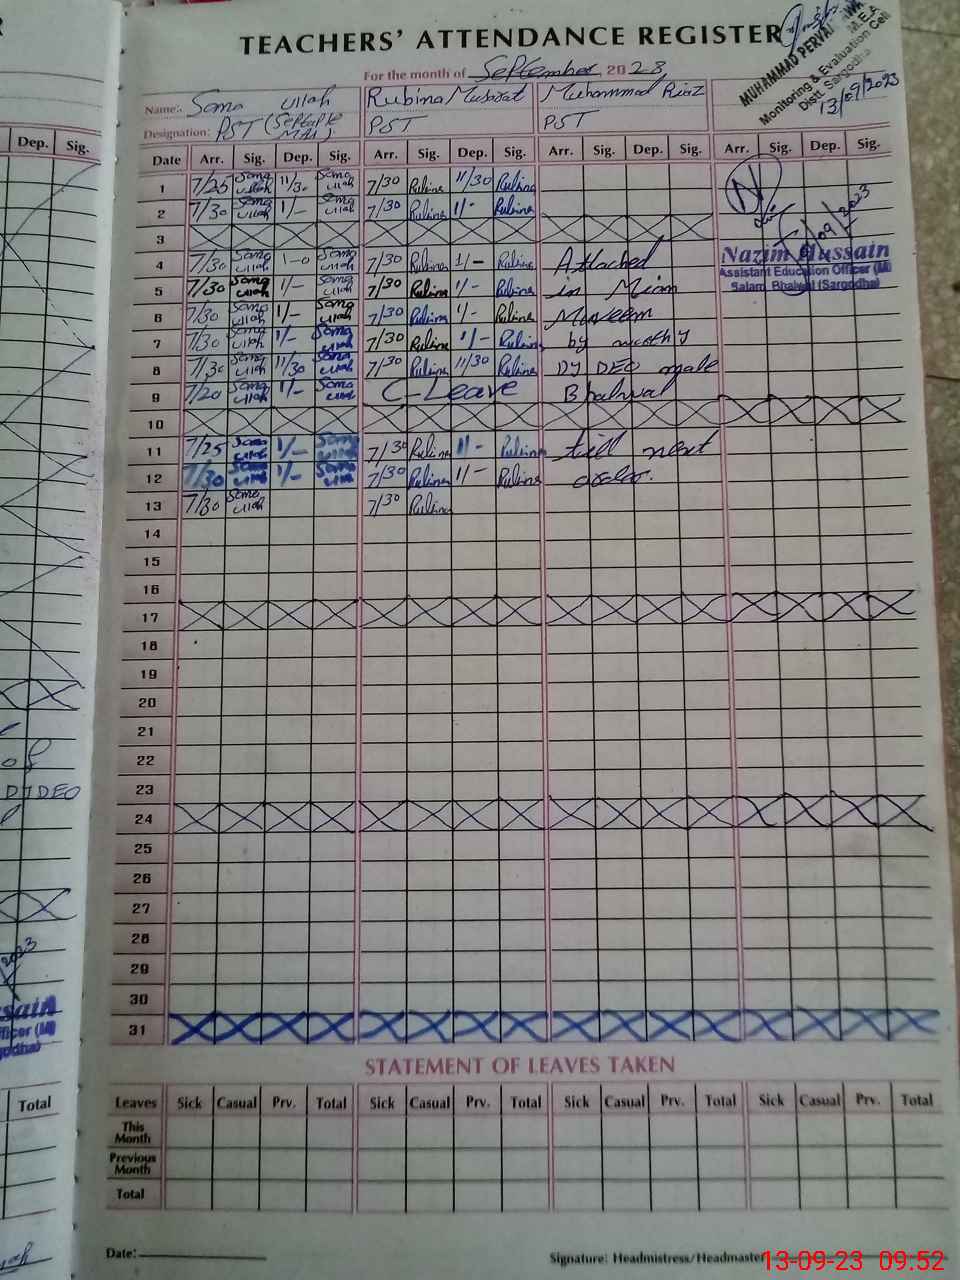 TEACHERS' ATTENDANCE REGISTER
For the month of September 2023
MUHAMMAD PERVAI
M.E.A
Monitoring & Evaluation Cell
Distt. Sargodha
13/09/2023
Name:. Sama ullah Rubina Musarat Muhammad Riaz
Designation: PST PST PST
Date Arr. Sig. Dep. Sig. Arr. Sig. Dep. Sig. Arr. Sig. Dep. Sig. Arr. Sig. Dep. Sig.
1 7/25 Sama ullah 11/30 Sama ullah 7/30 Rubina 11/30 Rubina
2 7/30 Sama ullah 1/- Sama ullah 7/30 Rubina 1/- Rubina
3
4 7/30 Sama ullah 1-0 Sama ullah 7/30 Rubina 1/- Rubina Attached
5 7/30 Sama ullah 1/- Sama ullah 7/30 Rubina 1/- Rubina in Miani
6 7/30 Sama ullah 1/- Sama ullah 7/30 Rubina 1/- Rubina
7 7/30 Sama ullah 1/- Sama ullah 7/30 Rubina 1/- Rubina by
8 7/30 Sama ullah 11/30 Sama ullah 7/30 Rubina 11/30 Rubina DY DEO male
9 7/20 Sama ullah 1/- Sama ullah C-Leave Bhalwal
10
11 7/25 Sama ullah 1/- Sama ullah 7/30 Rubina 1/- Rubina till next
12 7/30 Sama ullah 1/- Sama ullah 7/30 Rubina 1/- Rubina order.
13 7/30 Sama ullah 7/30 Rubina
14
15
16
17
18
19
20
21
22
23
24
25
26
27
28
29
30
31
Nazim Hussain
Assistant Education Officer (M)
Salam, Bhalwal (Sargodha)
STATEMENT OF LEAVES TAKEN
Leaves Sick Casual Prv. Total Sick Casual Prv. Total Sick Casual Prv. Total Sick Casual Prv. Total
This Month
Previous Month
Total
Date:
Signature: Headmistress/Headmaster
13-09-23 09.52
Dep. Sig.
DYDEO
2023
ssain
fficer (M)
godha)
Total